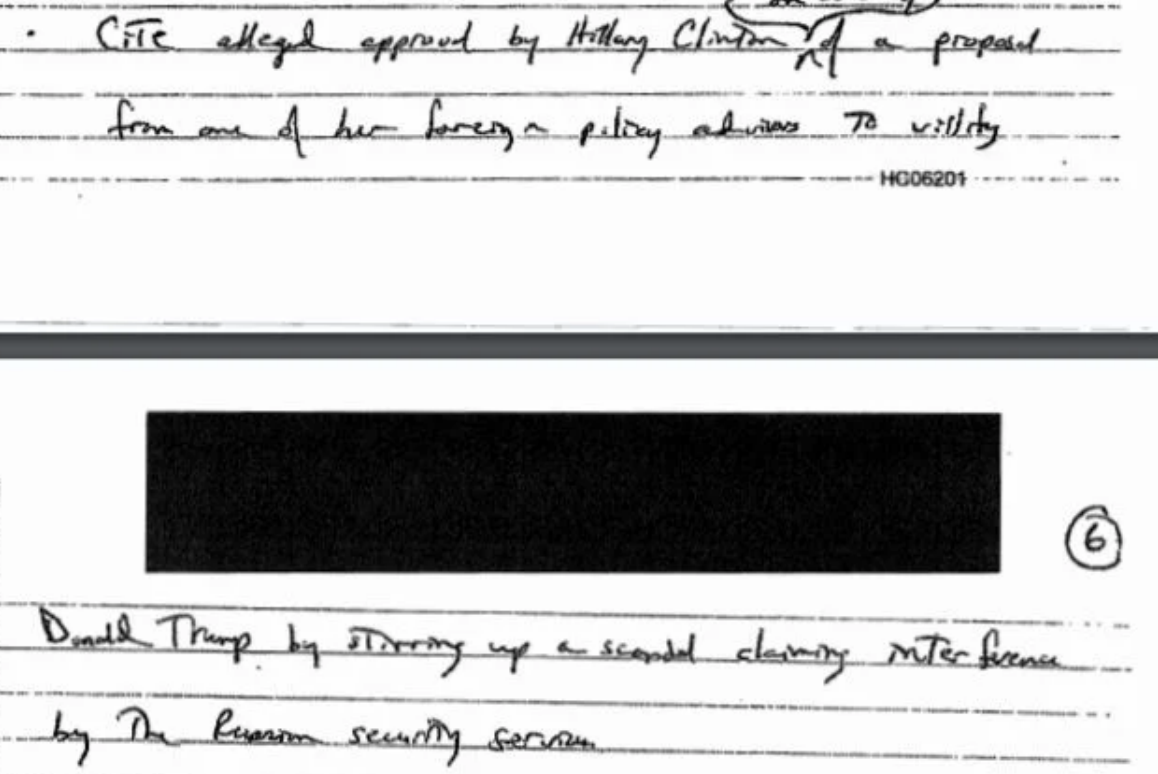 • CITE alleged approval by Hillary Clinton of a proposal
from one of her foreign policy advisors to villify
HC06201
6
Donald Trump by stirring up a scandal claiming interference
by the Russian security services